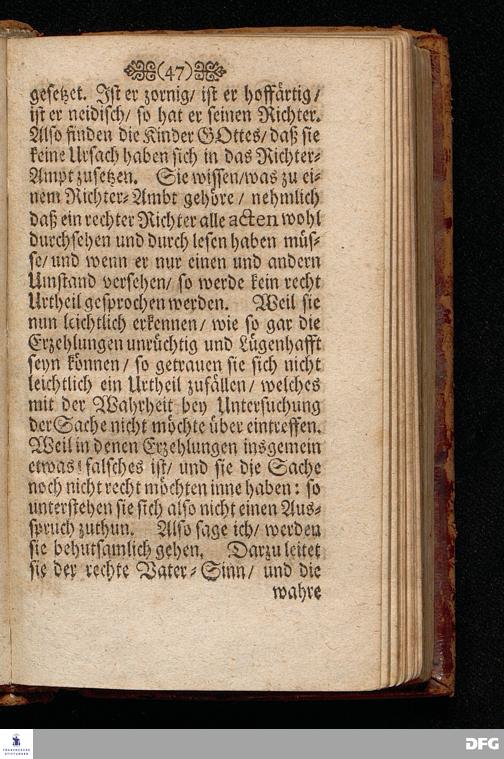 (47)
gesetzet. Ist er zornig/ ist er hoffärtig/
ist er neidisch/ so hat er seinen Richter.
Also finden die Kinder GOttes/ daß sie
keine Ursach haben sich in das Richter-
Ampt zusetzen. Sie wissen/was zu ei-
nem Richter-Ambt gehöre/ nehmlich
daß ein rechter Richter alle acten wohl
durchsehen und durch lesen haben müs-
se/ und wenn er nur einen und andern
Umstand versehen/ so werde kein recht
Urtheil gesprochen werden. Weil sie
nun leichtlich erkennen/ wie so gar die
Erzehlungen unrüchtig und Lügenhafft
seyn können/ so getrauen sie sich nicht
leichtlich ein Urtheil zufällen/ welches
mit der Wahrheit bey Untersuchung
der Sache nicht möchte über eintreffen.
Weil in denen Erzehlungen insgemein
etwas falsches ist/ und sie die Sache
noch nicht recht möchten inne haben: so
unterstehen sie sich also nicht einen Aus-
spruch zuthun. Also sage ich/ werden
sie behutsamlich gehen. Darzu leitet
sie der rechte Vater-Sinn/ und die
wahre
FRANCKESCHE
STIFTUNGEN
DFG